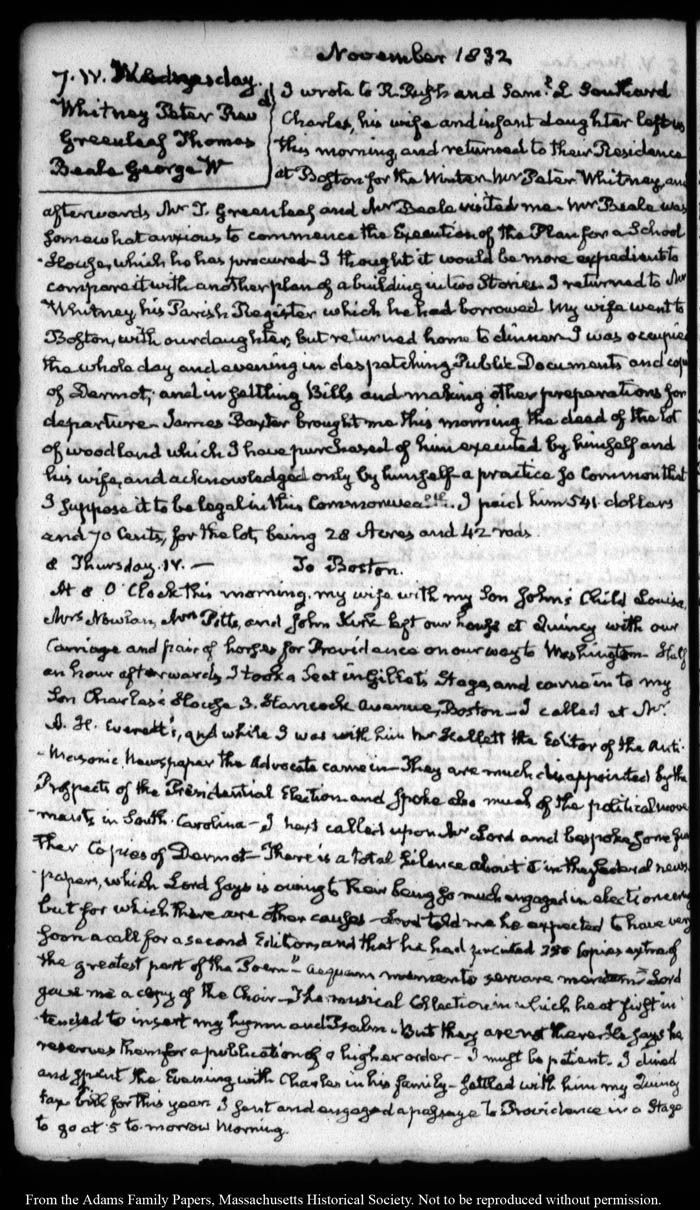 November 1832
7. IV. Wednesday.
Whitney Peter Rev
Greenleaf Thomas
Beale George W
I wrote to R Rush and Sam.l L Southard
Charles, his wife and infant daughter left us
this morning, and returned to their Residence
at Boston for the Winter. Mr Peter Whitney, and
afterwards Mr T. Greenleaf and Mr Beale visited me. Mr Beale was
somewhat anxious to commence the Execution of the Plan for a School
House, which he has procured. I thought it would be more expedient to
compare it with another plan of a building in two Stories. I returned to Mr
Whitney his Parish Register which he had borrowed. My wife went to
Boston, with our daughter, but returned home to dinner. I was occupied
the whole day and evening in despatching Public Documents and copies
of Dermot; and in settling Bills and making other preparations for
departure. James Baxter brought me this morning the deed of the lot
of woodland which I have purchased of him executed by himself and
his wife, and acknowledged only by himself—a practice so common that
I suppose it to be legal in this Commonwealth. I paid him 541 dollars
and 70 Cents, for the lot, being 28 Acres and 42 rods.
8 Thursday. IV.— To Boston.
At 8 O'Clock this morning, my wife with my Son John's Child Louisa,
Mrs Nowlan, Mrs Pitts, and John Kirke left our house at Quincy with our
Carriage and pair of horses for Providence on our way to Washington. Half
an hour afterwards, I took a Seat in Gillett's Stage, and came in to my
Son Charles's House 3. Hancock Avenue, Boston—I called at Mr.
A. H. Everett's, and while I was with him Mr Hallett the Editor of the Anti-
-Masonic Newspaper the Advocate came in—They are much disappointed by the
Prospects of the Presidential Election and spoke also much of the political move
-ments in South-Carolina—I next called upon Mr Lord and bespoke some fur
ther Copies of Dermot—There is a total silence about it in the federal news-
papers, which Lord says is owing to their being so much engaged in electioneering
but for which there are other causes—Lord told me he expected to have very
soon a call for a second Edition, and that he had printed 250 Copies extra of
the greatest part of the Poem—"Aequam memento servare mentem"—Lord
gave me a copy of the Choir—The musical Collection in which he at first in
tended to insert my hymn and Psalm. But they are not there. He says he
reserves them for a publication of a higher order—I must be patient. I dined
and spent the Evening with Charles in his family—settled with him my Quincy
tax bill for this year. I sent and engaged a passage to Providence in a Stage
to go at 5 to-morrow Morning.
From the Adams Family Papers, Massachusetts Historical Society. Not to be reproduced without permission.